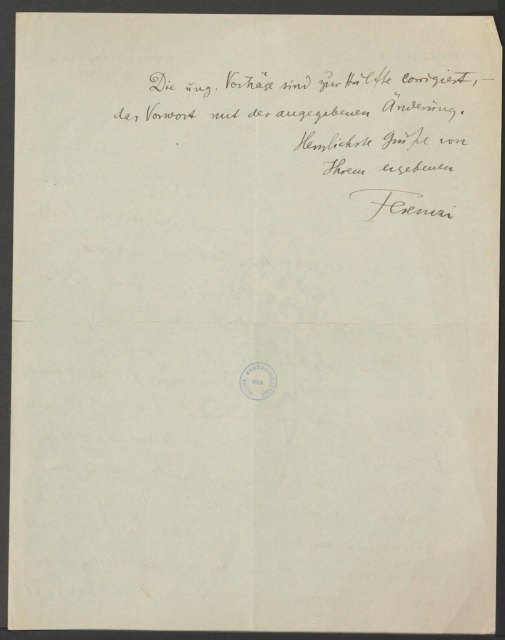 Die ung. Vorträge sind zur Hälfte corrigiert, –
das Vorwort mit der angegebenen Änderung.
Herzlichste Grüße von
Ihrem ergebenen
Ferenczi
WIEN